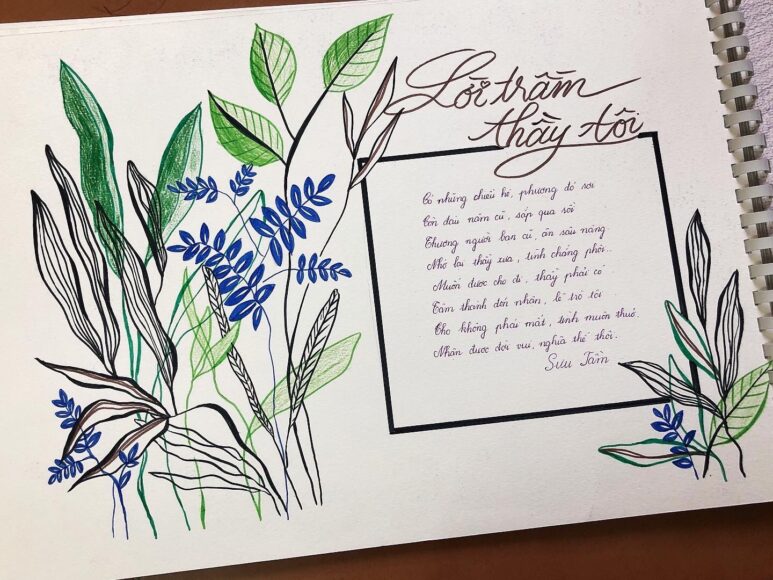 Lời trầm
thầy tôi
Có những chiều hè, phượng đỏ rơi
Còn đâu năm cũ, sắp qua rồi
Thương người bạn cũ, ân sâu nặng
Nhớ lại thầy xưa, tình chẳng phôi..
Muốn được cho đi, thầy phải có
Tâm thành đón nhận, lẽ trò tôi
Cho không phải mất, tình muôn thuở
Nhận được đời vui, nghĩa thế thôi.
Sưu Tầm